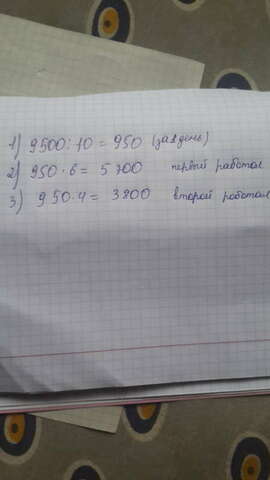 1) 9500:10 = 950 (за день)
2) 950·6 = 5700 первый работал
3) 950·4 = 3800 второй роботал